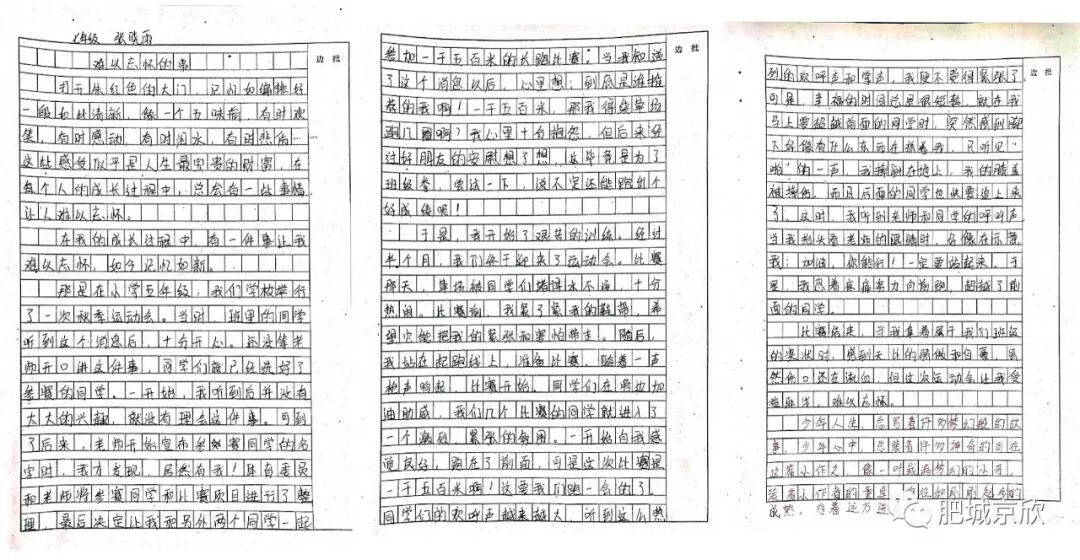 七年级 张晓雨
边批
难以忘怀的事
打开朱红色的大门，记忆如编排好
一般如此清新，像一个五味瓶，有时欢
笑，有时感动，有时泪水，有时悲伤…
这些感受似乎是人生最宝贵的财富，在
每个人的成长过程中，总会有一些事情
让人难以忘怀。
在我的成长过程中，有一件事让我
难以忘怀，如今记忆如新。
那是在小学五年级，我们学校举行
了一次秋季运动会。当时，班里的同学
听到这个消息后，十分开心。还没等老
师开口讲这件事，同学们就已经选好了
参赛的同学。一开始，我听到后并没有
太大的兴趣，就没有理会这件事。可到
了后来，老师开始宣布参赛同学的名
字时，我才发现，居然有我！体育委员
和老师将参赛同学和比赛项目进行了整
理，最后决定让我和另外两个同学一起
边批
参加一千五百米的长跑比赛。当我知道
了这个消息以后，心里想：到底是谁推
荐的我啊！一千五百米，那我得绕操场
跑几圈啊？我心里十分抱怨，但后来经
过好朋友的安慰想了想，这毕竟是为了
班级拳，尝试一下，说不定还能跑出个
好成绩呢！
于是，我开始了艰苦的训练。经过
半个月，我们终于迎来了运动会。比赛
那天，操场被同学们堵得水不通，十分
热闹。比赛前，我系了系我的鞋带，希
望它能把我的紧张和害怕带走。随后，
我站在起跑线上，准备比赛，随着一声
枪声响起，比赛开始。同学们在旁边加
油助威，我们几个比赛的同学就进入了
一个激烈、紧张的氛围。一开始的我感
觉良好，跑在了前面，可是这次比赛是
一千五百米啊！这要我们跑一会的了。
同学们的欢呼声越来越大，听到这么热
边批
烈的欢呼声和掌声，我便不觉得紧张了。
可是，幸福的时间总是很短暂，就在我
马上要超越前面的同学时，突然感到脚
下好像有什么东西在拽着我，只听见“
啪”的一声，我摔到在地上，我的膝盖
被擦伤，而且后面的同学也快要追上来
了。这时，我听到老师和同学的呼叫声
当我抬头看老师的眼睛时，好像在示意
我：加油，你能行！一定要站起来。于
是，我忍着疼痛奋力向前跑，超越了前
面的同学。
比赛结束，当我拿着属于我们班级
的奖状时，感到无比的骄傲和自豪，虽
然伤口还在流血，但这次运动会让我受
益匪浅，难以忘怀。
少年人生，总写着许多梦幻般的故
事，少年心中，总装有许多神奇的自在
这篇小作文，像一叶载满梦幻的小舟，
成熟，向着远方进
肥城京欣